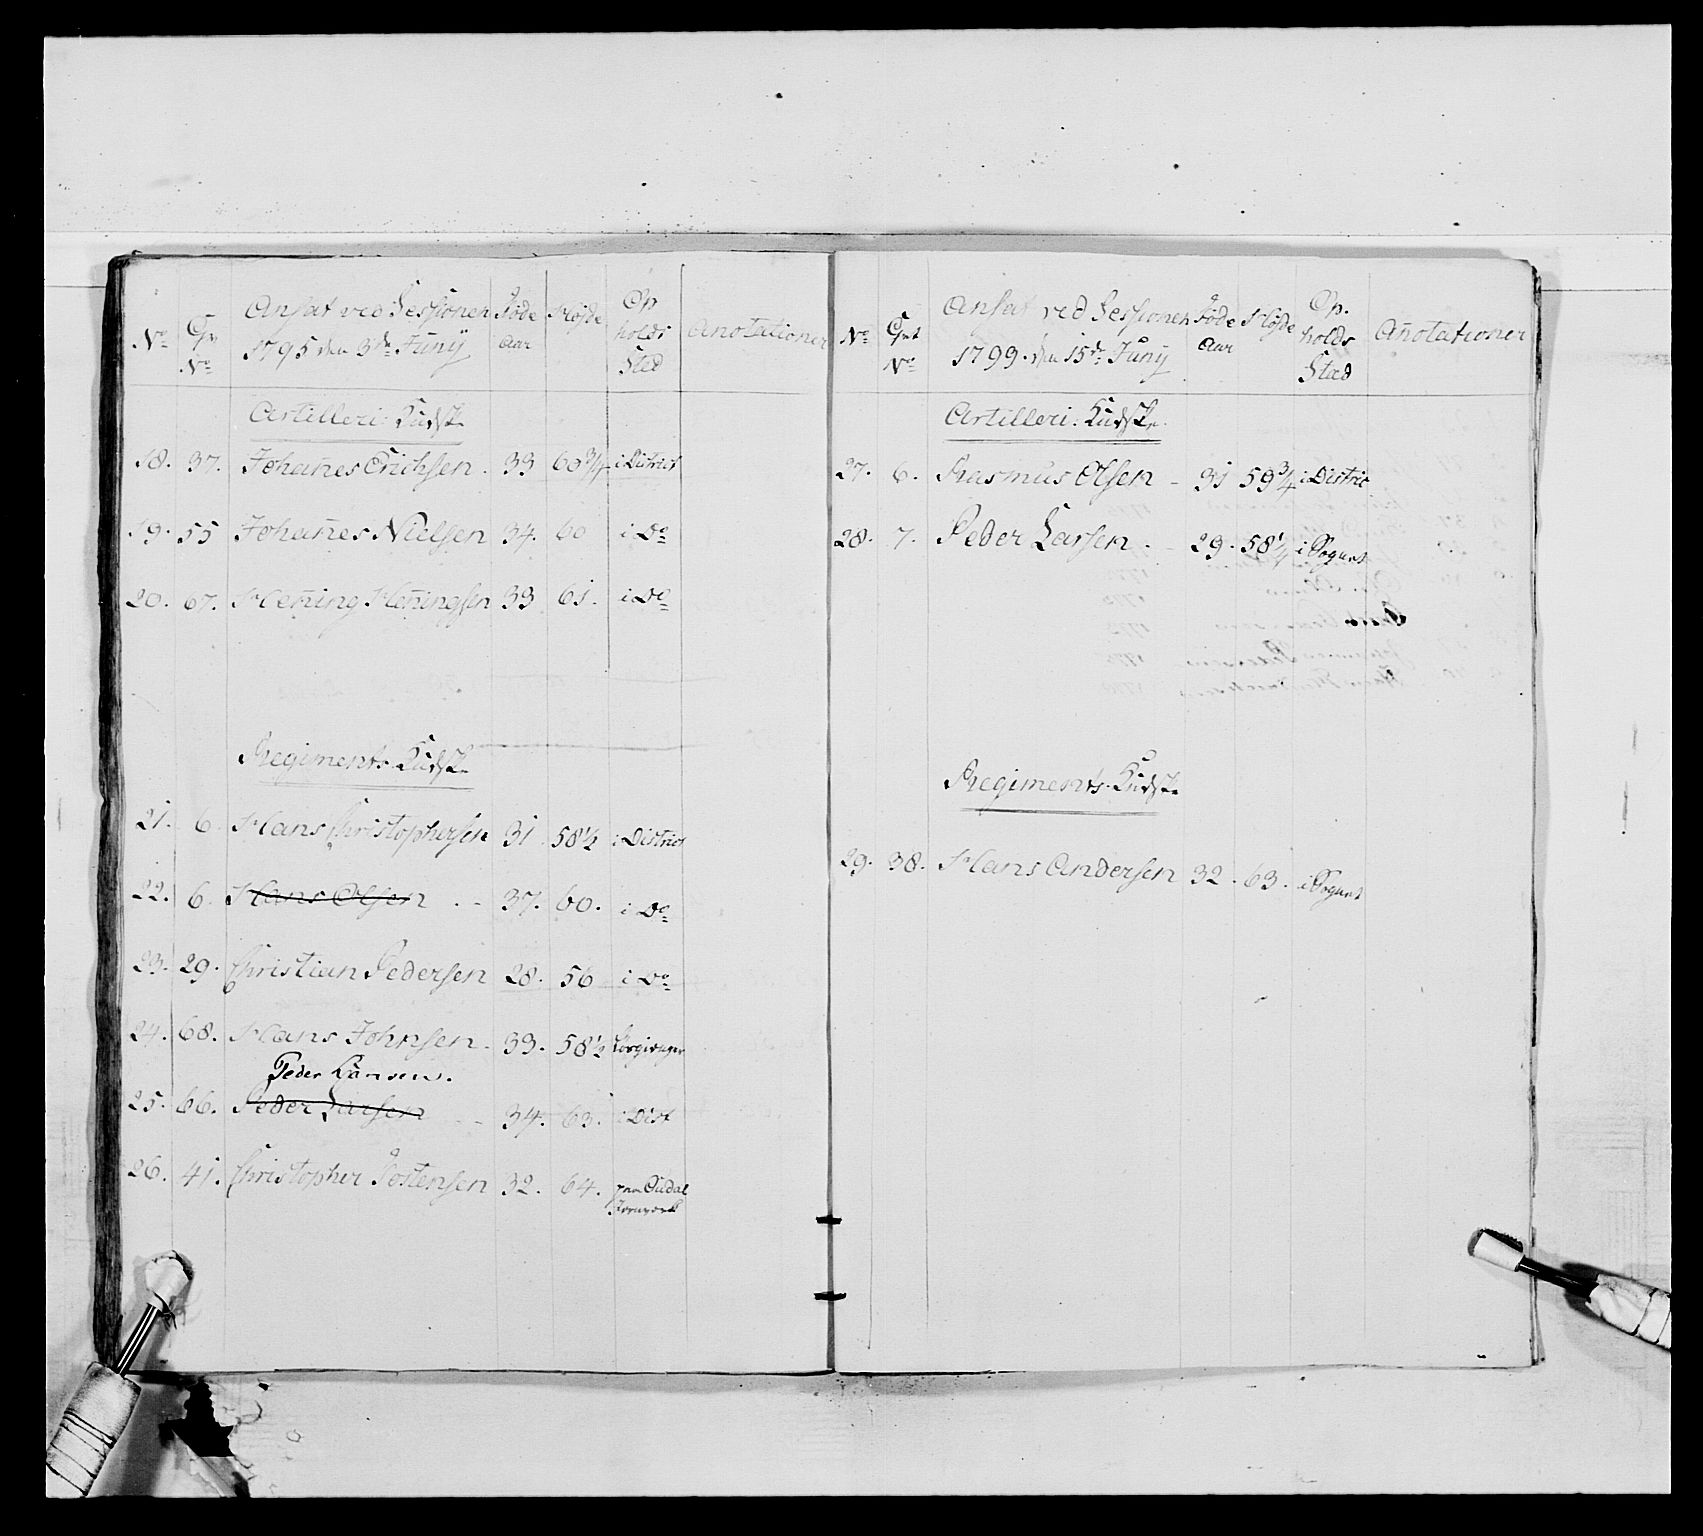 No Cpt No Ansat ved Sessionen 1795 den 3de Junÿ Føde Aar Høÿde Op holds Sted Anotationer
Artilleri: Kudsk.
18. 37. Johan̄es Erichsen. 33 60 3/4 i District
19. 55 Johan̄es Nielsen 34. 60 i Do
20. 67. Hen̄ing Hen̄ingsen 33 61. i Do
Regiments-Kudsk.
21. 6 Hans Christophersen 31 58 1/2 i District
22. 6. Hans Olsen . - 37. 60. i Do
23. 29. Christian Pedersen 28. 56 i Do
24. 68. Hans Johnsen. 33. 58 1/2
Peder Hansen.
25. 66. Peder Larsen - - 34. 63. i Dist
26. 41. Christopher Jostensen 32. 64. Oudal
No Cpt No Ansat ved Sessionen 1799. den 15de Junÿ Føde Aar Høÿde Op. holds Stæd Anotationer
Artilleri: Kudsk.
27. 6. Rasmus Olsen - 31 59 3/4 i Distric
28. 7. Peder Larsen. - 29. 58 1/4 i Sognet
Regiments-Kudsk.
29. 38. Hans Andersen 32. 63. i Sognet